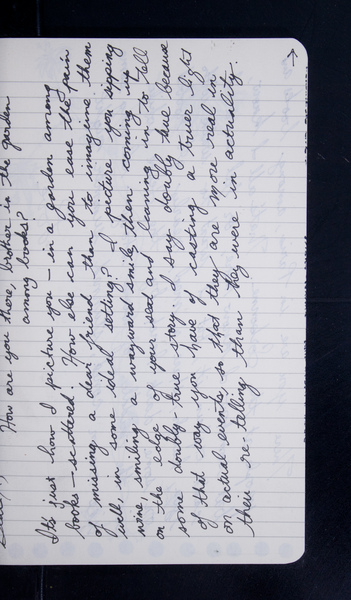 How are you there, brother in the garden
among books?
It's just how I picture you — in a garden among
books — scattered. How else can you ease the pain
of missing a dear friend than to imagine them
well, in some ideal setting? I picture you sipping
wine smiling a wayward smile, then coming
on the edge of your seat and leaning in to tell
some doubly-true story. I say doubly true because
of that way you have of casting a truer light
on actual events, so that they are more real in
their re-telling than they were in actuality.
→